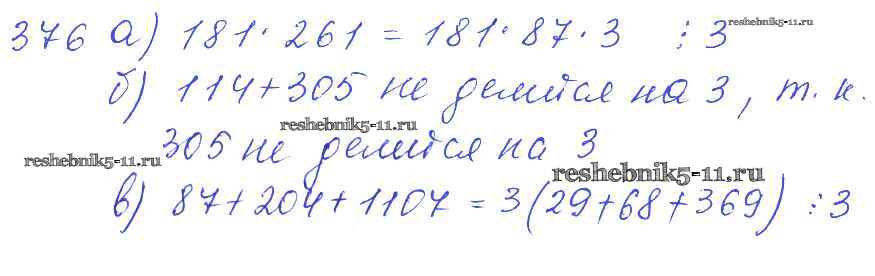 376 а) 181 · 261 = 181 · 87 · 3 ⋮ 3
reshebnik5-11.ru
б) 114 + 305 не делится на 3, т. к.
reshebnik5-11.ru
305 не делится на 3
reshebnik5-11.ru
reshebnik5-11.ru
в) 87 + 204 + 1107 = 3(29 + 68 + 369) ⋮ 3